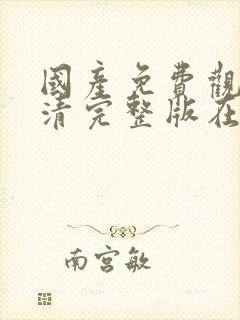 國產免費觀
清完整版在
南宮敏